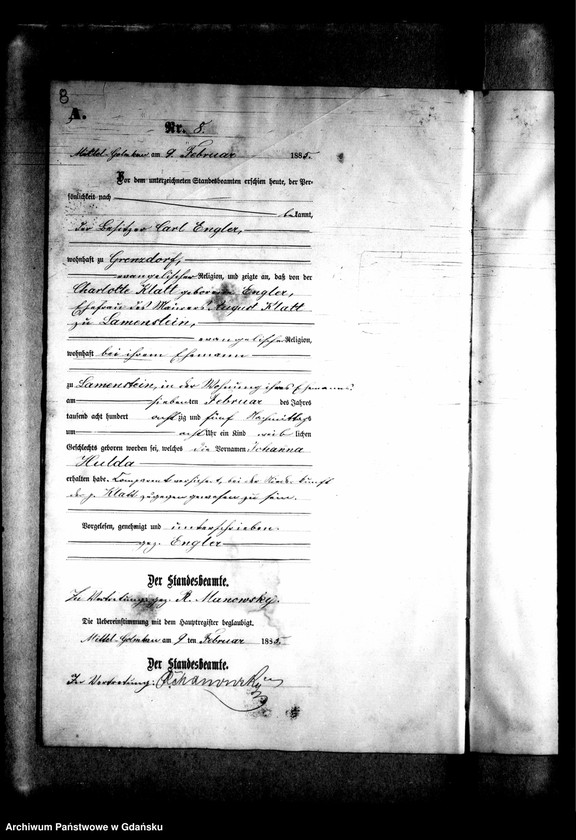 8
A.
Nr. 8.
Mittel-Golmkau am 9. Februar 1885.
Vor dem unterzeichneten Standesbeamten erschien heute, der Per-
sönlichkeit nach
bekannt,
der Besitzer Carl Engler,
wohnhaft zu Grenzdorf,
evangelischer Religion, und zeigte an, daß von der
Charlotte Klatt geborenen Engler,
Ehefrau des Maurers August Klatt
zu Lamenstein,
evangelischer Religion,
wohnhaft bei ihrem Ehemann
zu Lamenstein, in der Wohnung ihres Ehemannes
am siebenten Februar des Jahres
tausend acht hundert achtzig und fünf Nachmittags
um acht Uhr ein Kind weiblichen
Geschlechts geboren worden sei, welches die Vornamen Johanna
Hulda
erhalten habe. Comparent versichert, bei der Niederkunft
der p. Klatt zugegen gewesen zu sein.
Vorgelesen, genehmigt und unterschrieben.
gez. Engler
Der Standesbeamte.
In Vertretung: gez. R. Manowsky.
Die Uebereinstimmung mit dem Hauptregister beglaubigt.
Mittel-Golmkau am 9ten Februar 1885.
Der Standesbeamte.
In Vertretung:
Archiwum Państwowe w Gdańsku